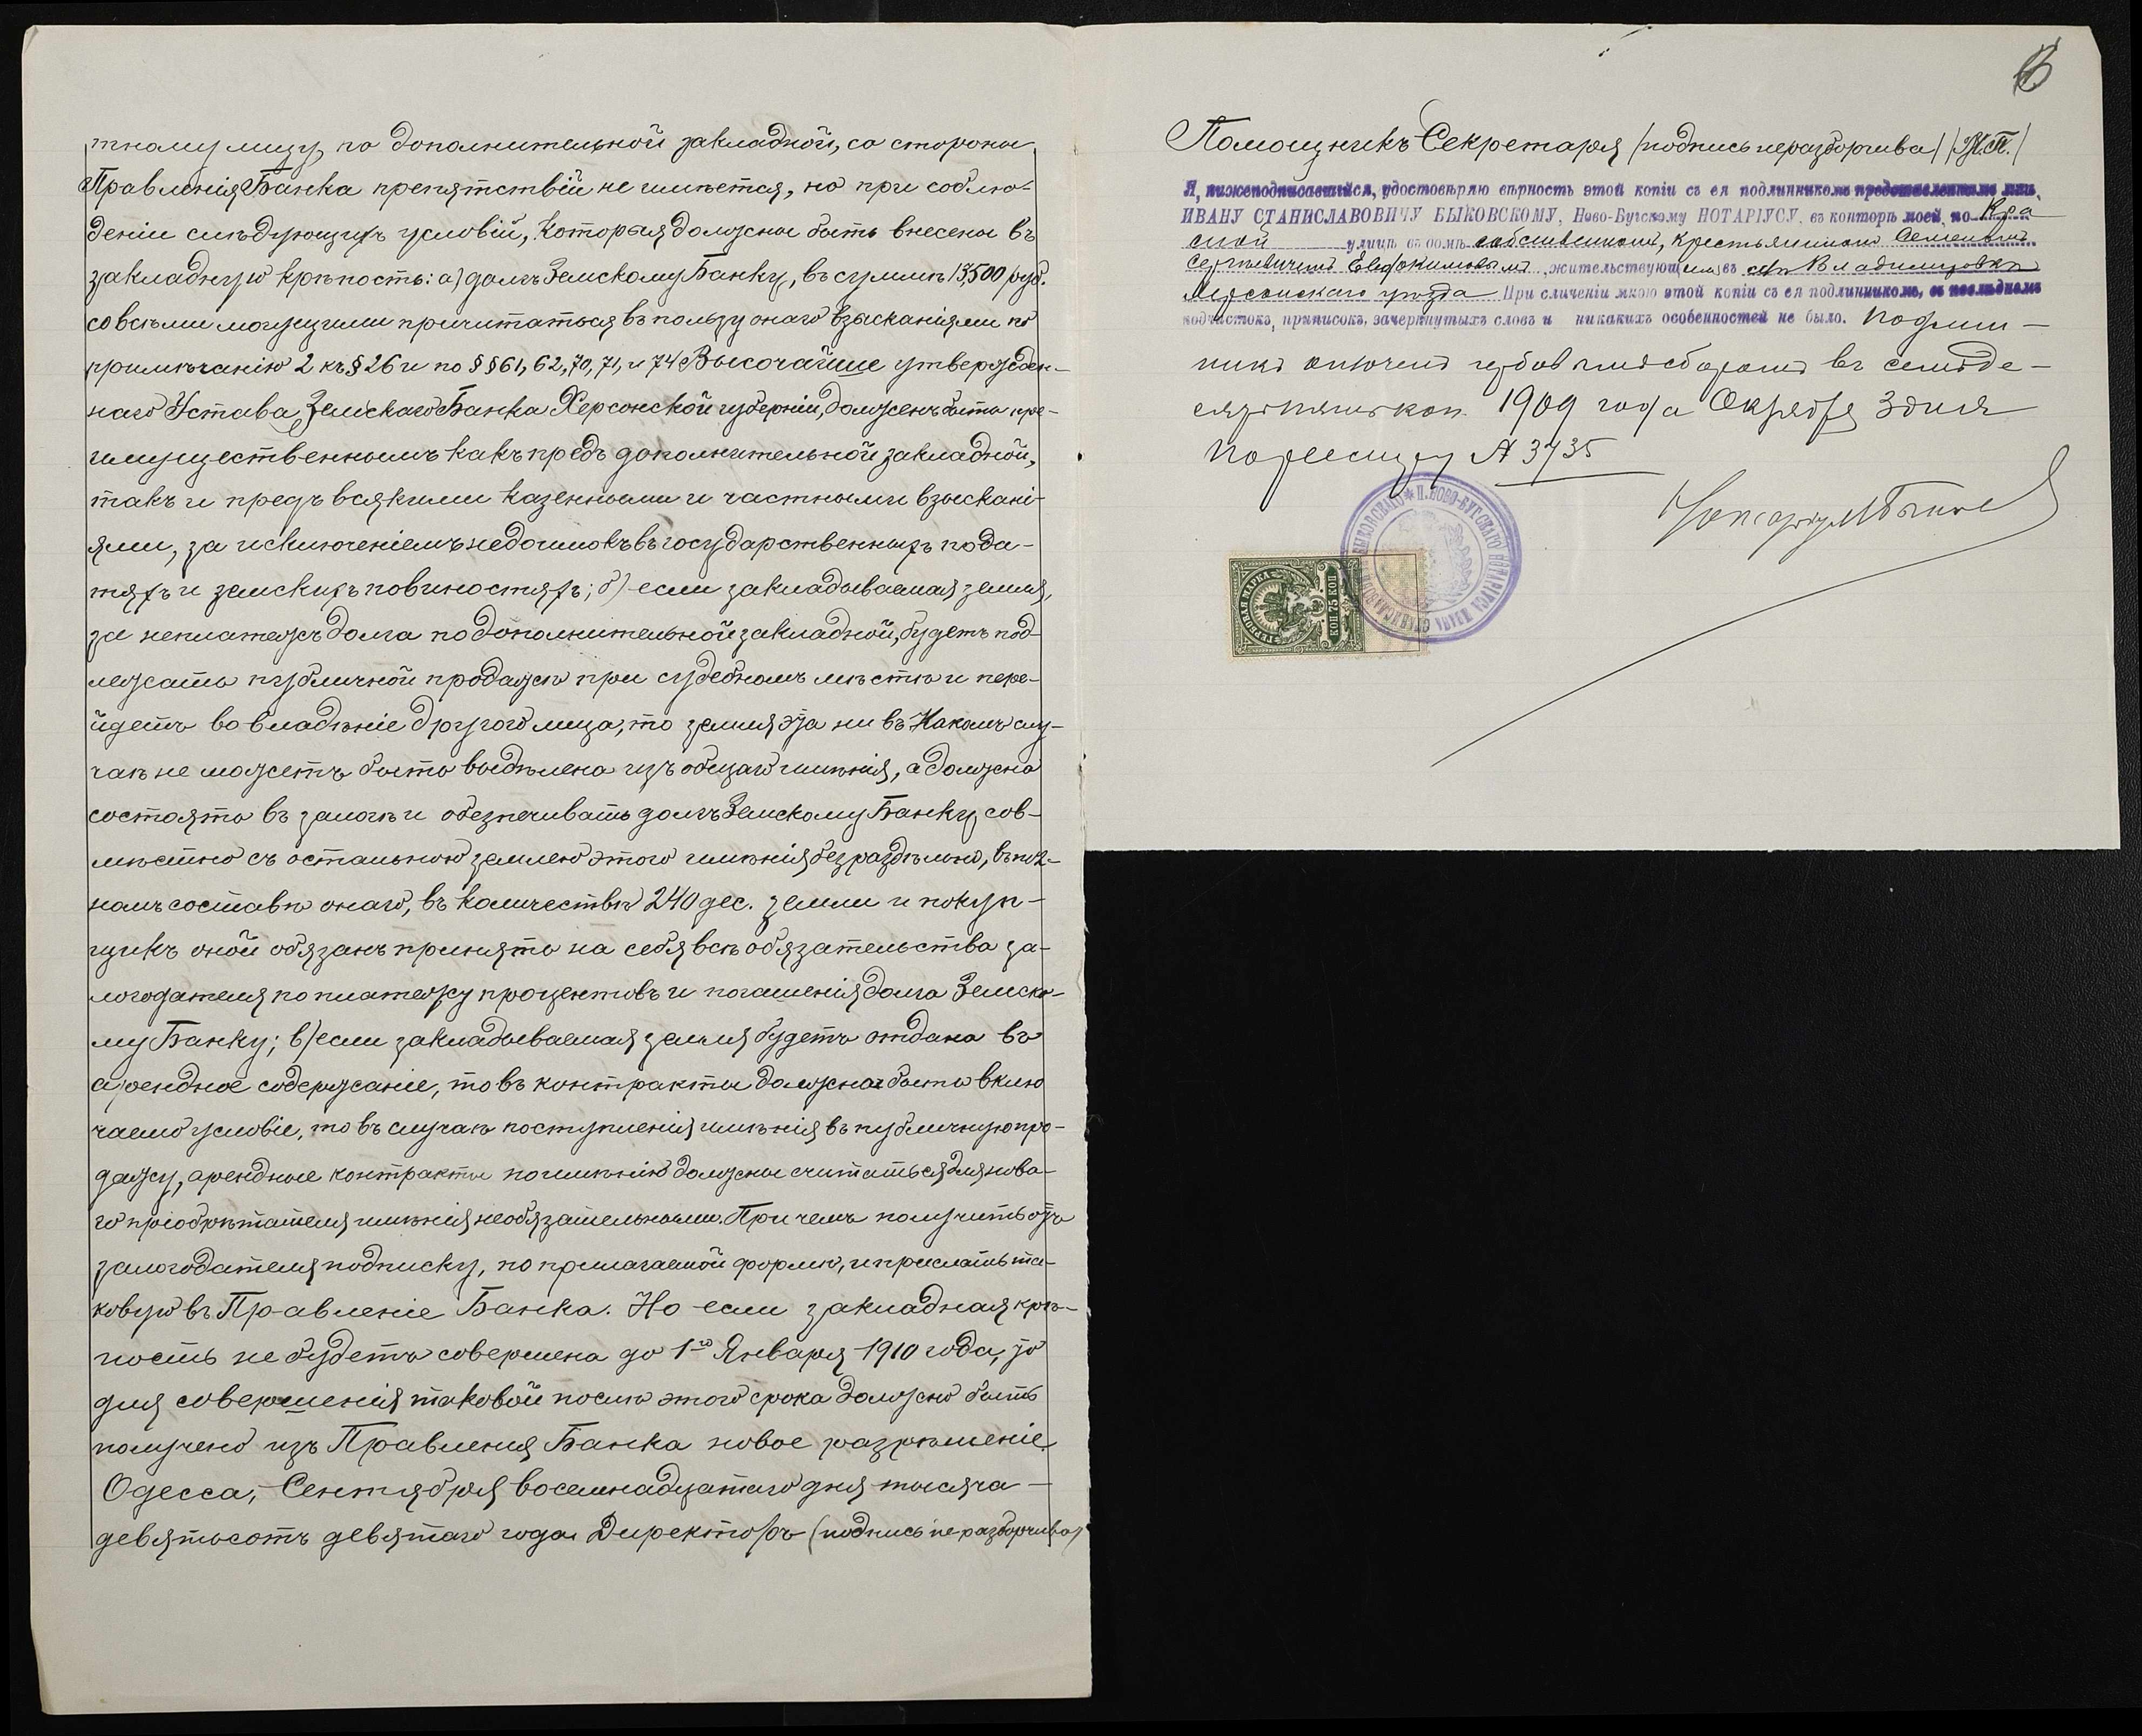 тному лицу, по дополнительной закладной, со стороны
Правленія Банка препятствій не имѣется, но при соблю-
деніи слѣдующихъ условій, которыя должны быть внесены въ
закладную крѣпость: а) долгъ Земскому Банку, въ суммѣ 13,500 руб.
со всѣми могущими причитаться въ пользу онаго взысканіями по
примѣчанію 2 къ § 26 и по §§ 61, 62, 70, 71, и 74 Высочайше утвержден-
наго Устава Земскаго Банка Херсонской губерніи, долженъ быть пре-
имущественнымъ какъ предъ дополнительной закладной,
такъ и предъ всякими казенными и частными взыскані-
ями, за исключеніемъ недоимокъ въ государственныхъ пода-
тяхъ и земскихъ повиностяхъ; б) если закладываемая земля,
за неплатежъ долга по дополнительной закладной, будетъ под-
лежать публичной продажѣ при судебномъ мѣстѣ и пере-
йдетъ во владѣніе другого лица, то земля эта ни въ какомъ слу-
чаѣ не можетъ быть выдѣлена изъ общаго имѣнія, а должна
состоять въ залогѣ и обезпечивать долгъ Земскому Банку, сов-
мѣстно съ остальною землею этого имѣнія безраздѣльно, въ пол-
номъ составѣ онаго, въ количествѣ 240 дес. земли и покуп-
щикъ оной обязанъ принять на себя всѣ обязательства за-
логодателя по платежу процентовъ и погашенія долга Земско-
му Банку; в) если закладываемая земля будетъ отдана въ
арендное содержаніе, то въ контракты должно быть вклю
чаемо условіе, то въ случаѣ поступленія имѣнія въ публичную про-
дажу, арендные контракты по имѣнію должны считаться для нова-
го пріобрѣтателя имѣнія необязательными. При чемъ получить отъ
залогодателя подписку, по прилагаемой формѣ, и прислать та-
ковую въ Правленіе Банка. Но если закладная крѣ-
пость не будетъ совершена до 1го Января 1910 года, то
для совершенія таковой послѣ этого срока должно быть
получено изъ Правленія Банка новое разрѣшеніе.
Одесса, Сентября восемнадцатаго дня тысяча
девятьсотъ девятаго года. Директоръ (подпись неразборчива)
Помощникъ Секретаря (подпись неразборчива) (М.П.)
Я, нижеподписавшійся, удостовѣряю вѣрность этой копіи съ ея подлинникомъ представленнымъ мнѣ,
ИВАНУ СТАНИСЛАВОВИЧУ БЫКОВСКОМУ, Ново-Бугскому НОТАРІУСУ, въ конторѣ моей, по
улицѣ въ домѣ собственномъ, крестьяниномъ Семеномъ
Сергѣевичемъ Евдокимовымъ, жительствующимъ въ Владимировкѣ
Херсонскаго уѣзда При сличеніи мною этой копіи съ ея подлинникомъ, въ послѣднемъ
подчистокъ, приписокъ, зачеркнутыхъ словъ и никакихъ особенностей не было. Подлин-
никъ оплаченъ гербовымъ сборомъ въ семьде-
сятъ пять коп. 1909 года Октября 3 дня
По реестру № 3735
Нотаріусъ И Быков
И. НОВО-БУГСКАГО НОТАРІУСА ИВАНА СТАНИСЛАВОВИЧА БЫКОВСКАГО
ГЕРБОВАЯ МАРКА
КОП 75 КОП